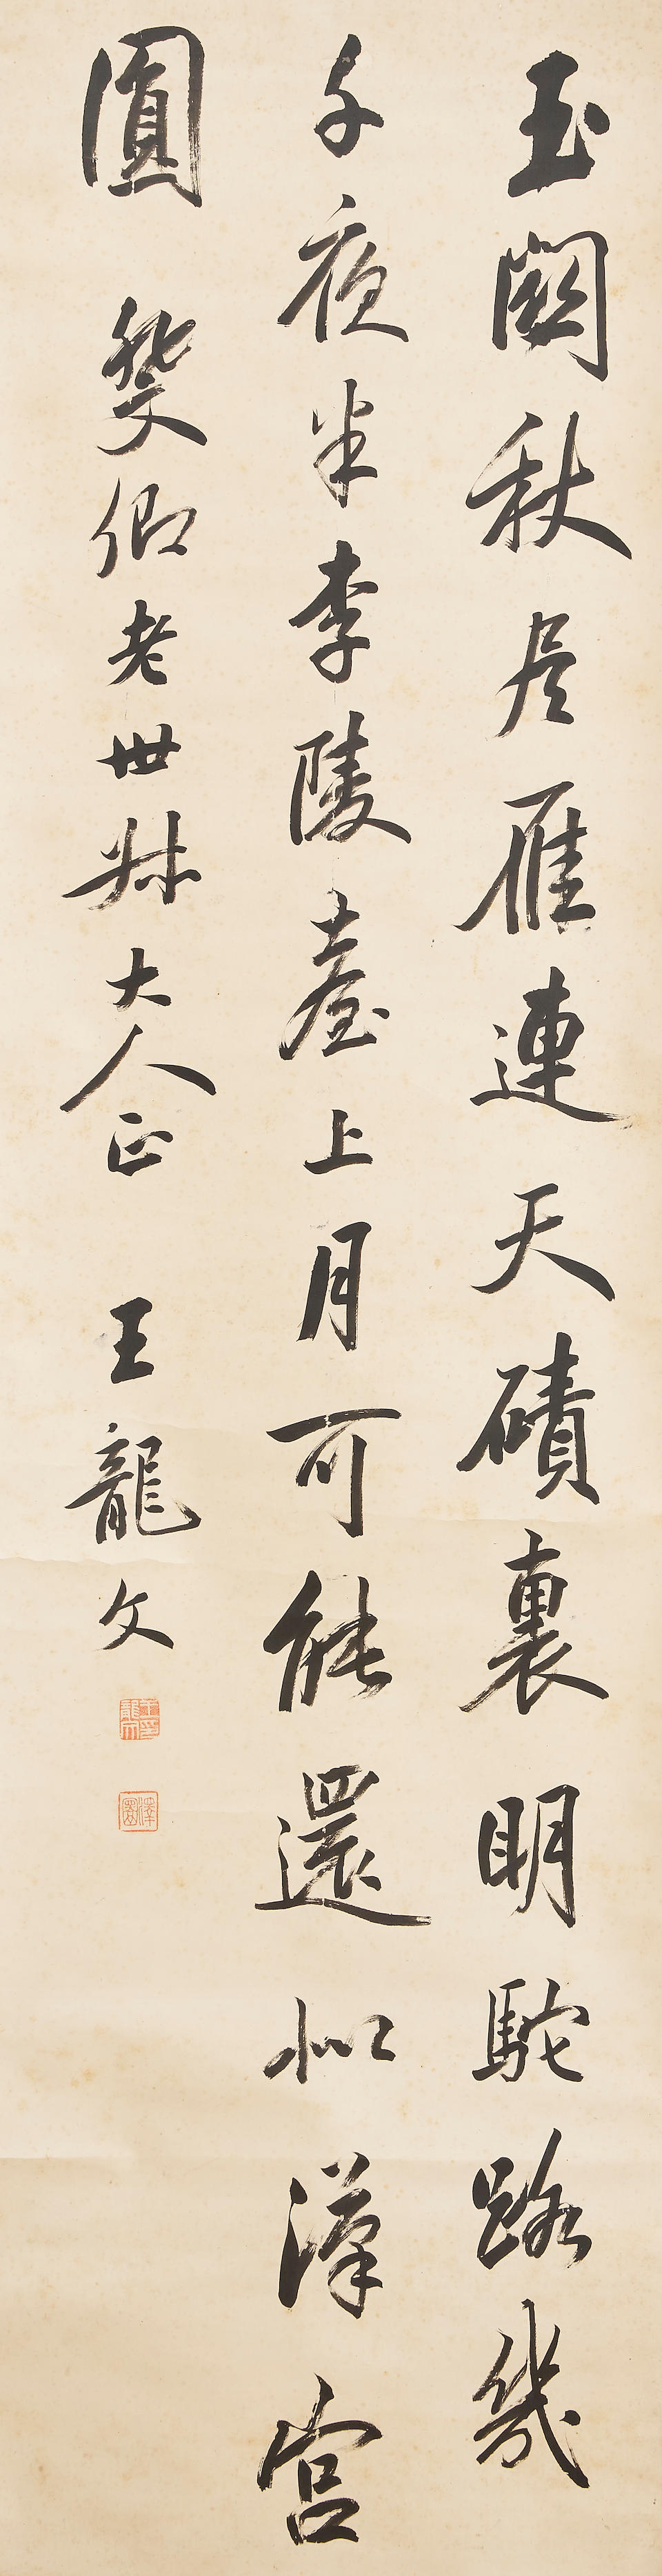 玉關秋盡雁連天磧裏明駝路幾
千夜半李陵臺上月可能還似漢宮
圓 燮卿老世叔大人正 王龍文